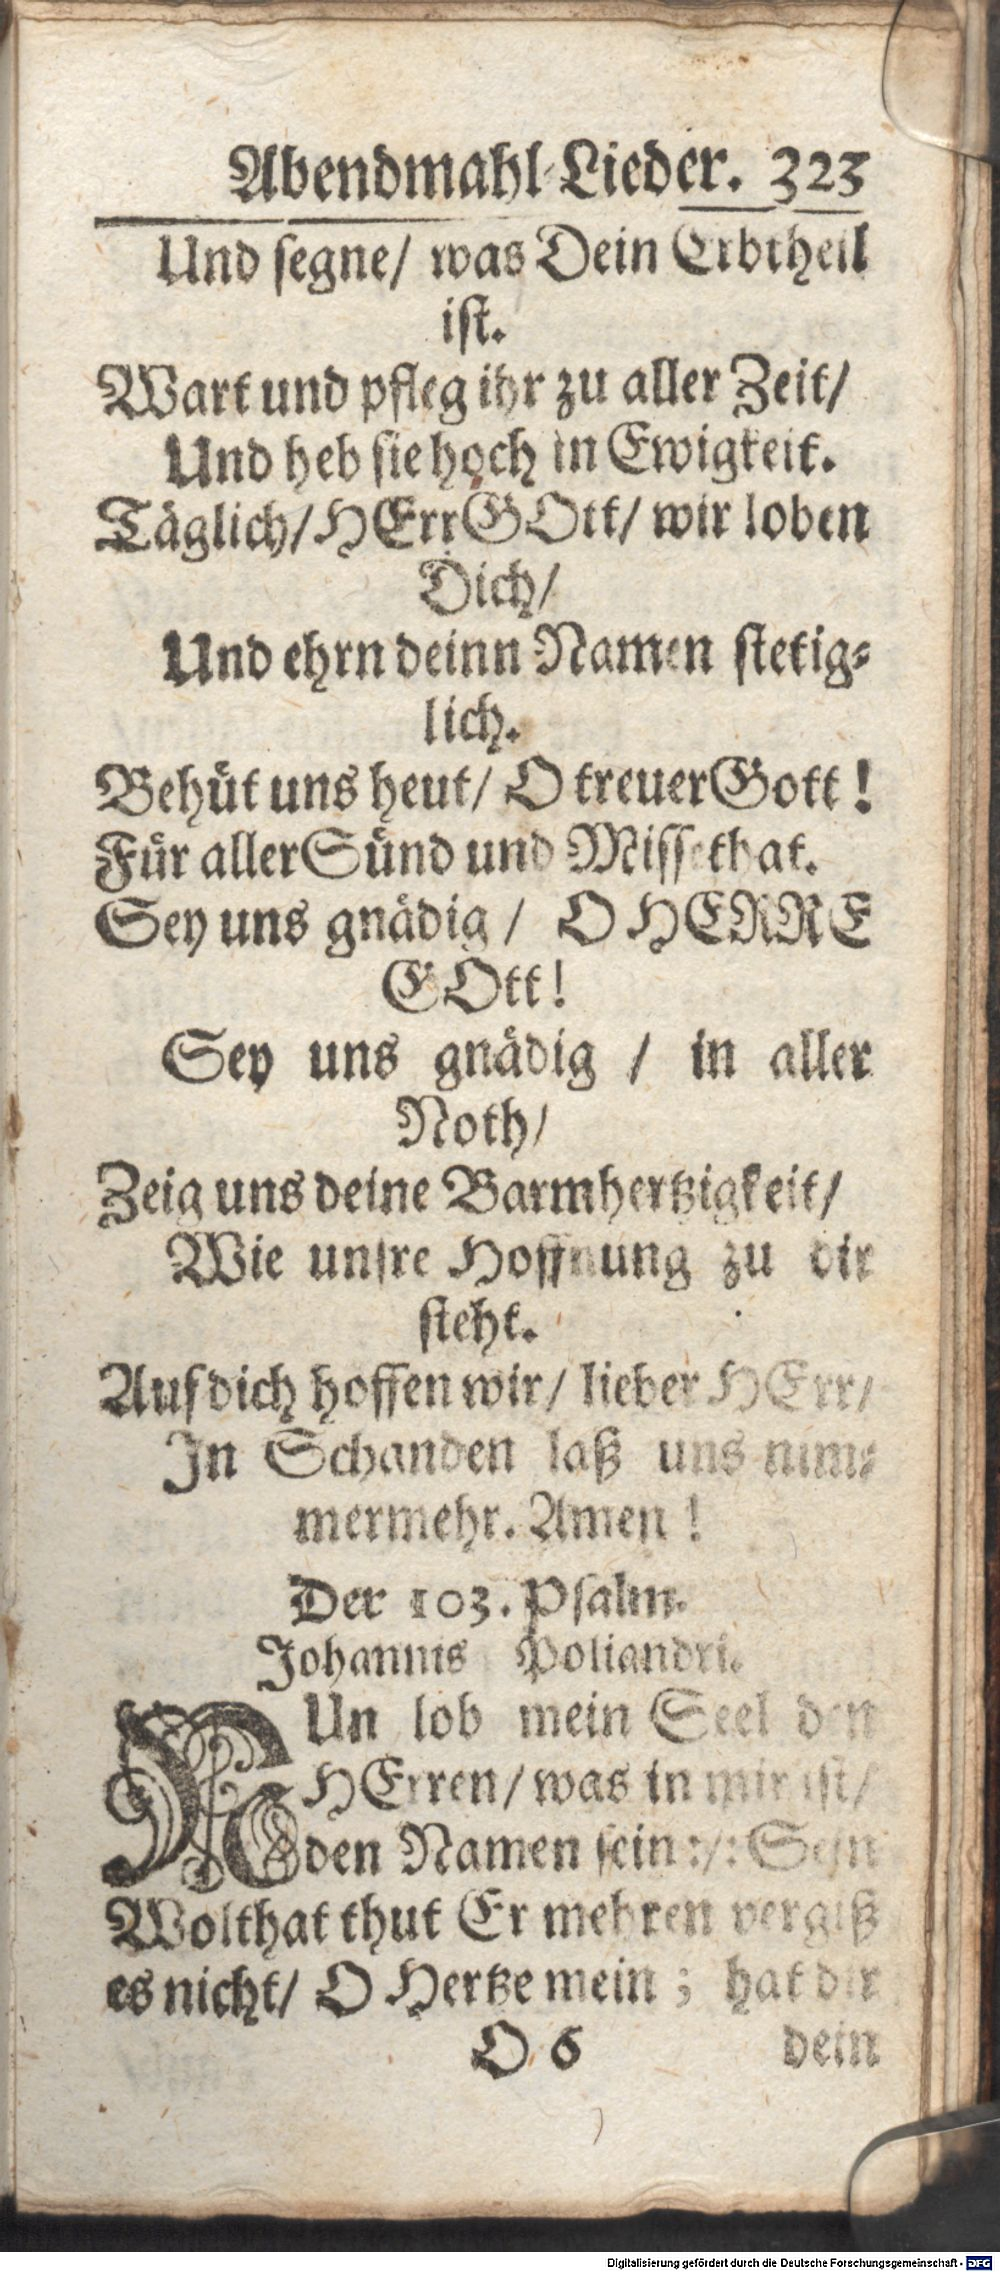 Abendmahl-Lieder. 323
Und segne/ was Dein Erbtheil
ist.
Wart und pfleg ihr zu aller Zeit/
Und heb sie hoch in Ewigkeit.
Täglich/ HErr GOtt/ wir loben
Dich/
Und ehrn deinn Namen stetig-
lich.
Behüt uns heut/ O treuer Gott!
Für aller Sünd und Missethat.
Sey uns gnädig / O HERRE
GOtt!
Sey uns gnädig / in aller
Noth/
Zeig uns deine Barmhertzigkeit/
Wie unsre Hoffnung zu dir
steht.
Auf dich hoffen wir/ lieber HErr/
In Schanden laß uns nim-
mermehr. Amen!
Der 103. Psalm.
Johannis Poliandri.
NUn lob mein Seel den
HErren/ was in mir ist/
den Namen sein :/: Sein
Wolthat thut Er mehren vergiß
es nicht/ O Hertze mein; hat dir
O 6 dein
Digitalisierung gefördert durch die Deutsche Forschungsgemeinschaft - DFG